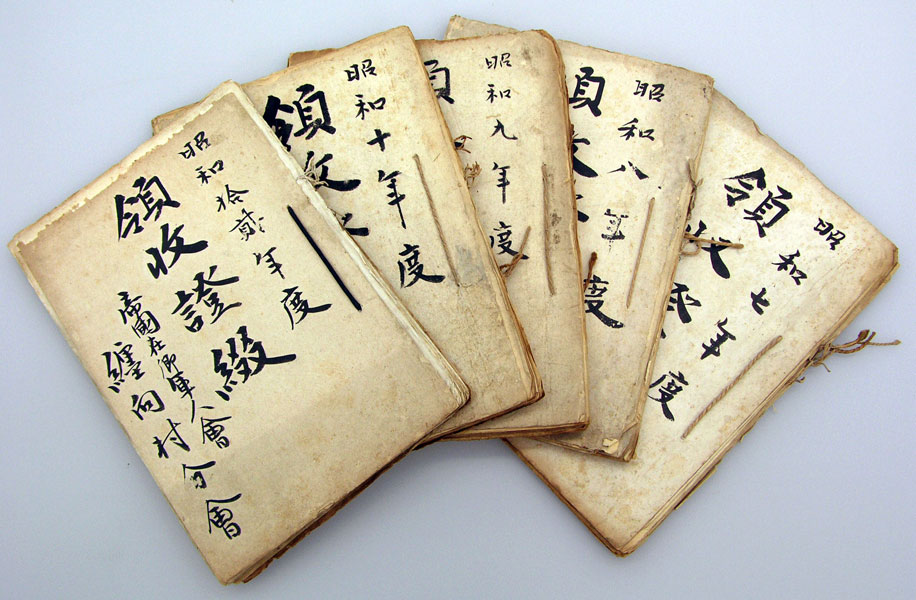 昭和拾貳年度
領收證綴
帝國在郷軍人會
纏向村分會
昭和十年度
領收
昭和九年度
領
昭和八年度
領收
昭和七年度
領收證